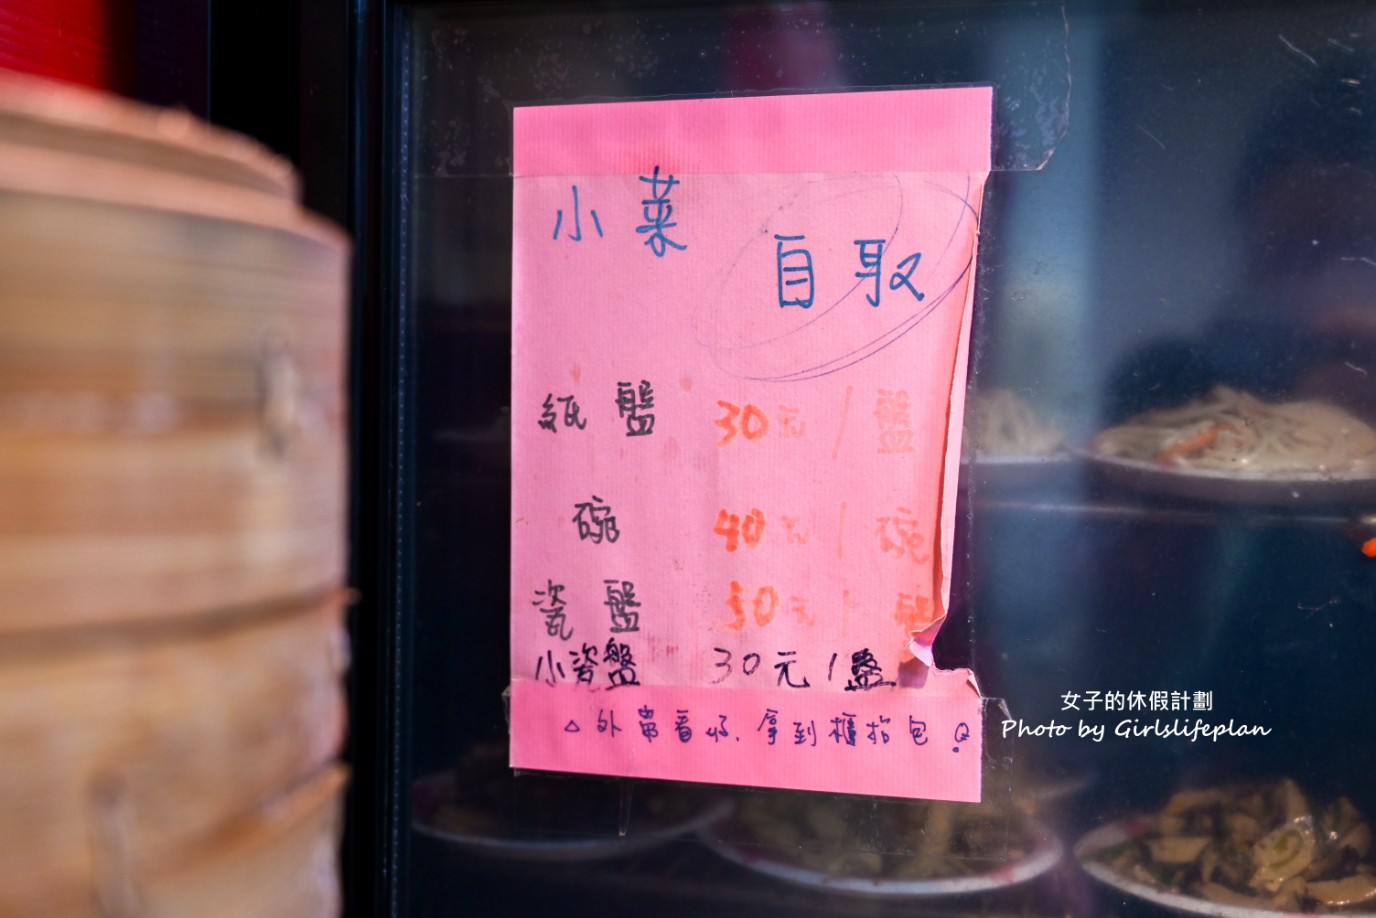 小菜
自取
紙盤 30元/盤
碗 40元/碗
瓷盤 50元/盤
小瓷盤 30元/盤
△外帶看好、拿到櫃抬包。
女子的休假計劃
Photo by Girlslifeplan